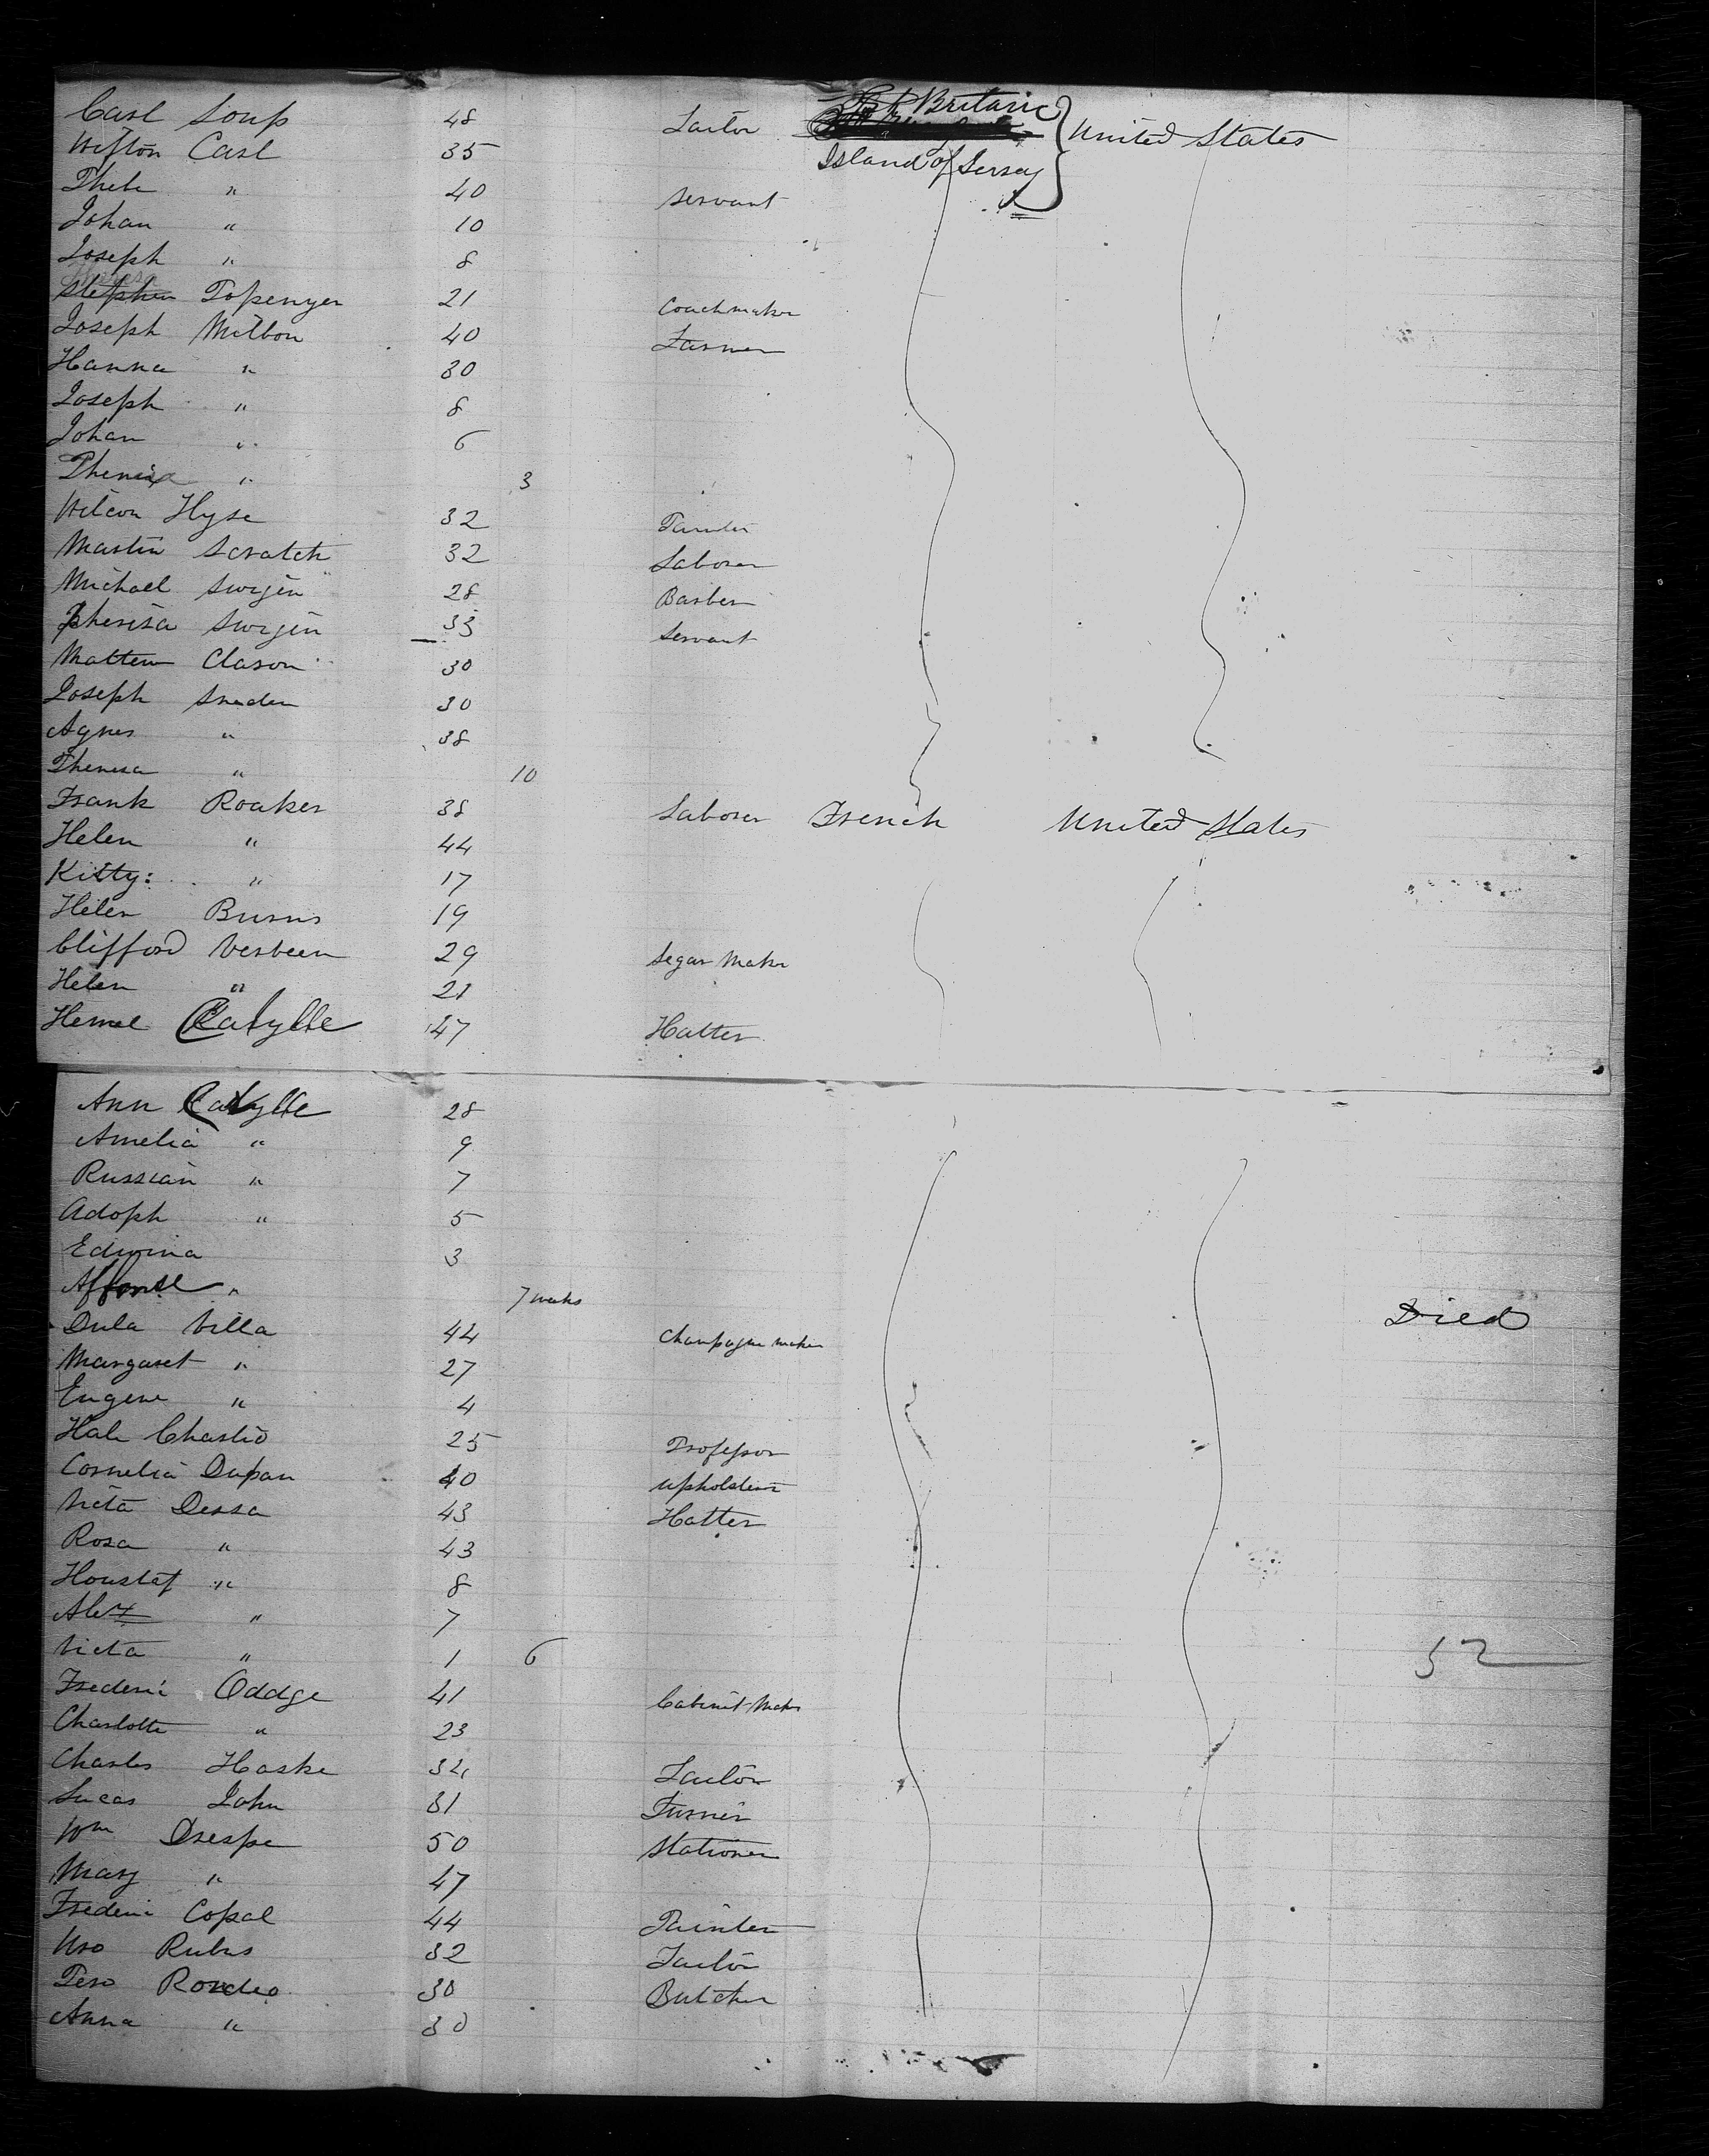 Carl Soup 48 Tailor Gt Britanic United States
Wifton Carl 35 Island of Jersey
Thebe " 40 servant
Johan " 10
Joseph " 8
Stephen Topenyer 21 Coachmaker
Joseph Milbon 40 Farmer
Hanna " 30
Joseph " 8
Johan " 6
Theresa " 3
Wilcon Hyse 32
Martin Scratch 32 Laborer
Michael Swejin 28 Barber
Theresa Swejin 33 Servant
Matten Clason 30
Joseph Sneden 30
Agnes " 38
Theresa " 10
Frank Roaker 38 Laborer French United States
Helen " 44
Kitty: " 17
Helen Burns 19
Clifford Verbeen 29 Segar Maker
Helen " 21
Hemel Catylle 47 Hatter
Ann Catylle 28
Amelia " 9
Russian " 7
Adoph " 5
Edwina 3
Affonse " 7 weeks Died
Dula Villa 44 Champagne maker
Margaret " 27
Eugene " 4
Hale Charlio 25 Professor
Cornelia Dupan 40 Upholsterer
Victa Dessa 43 Hatter
Rosa " 43
Houstaf " 8
Alex " 7
Victa " 1 6 52
Frederi Oddge 41 Cabinet Maker
Charlotte " 23
Charles Haske 32 Tailor
Lucas John 31 Turner
Wm Drespe 50 Stationer
Mary " 47
Frederi Copal 44 Painter
Uso Rubus 32 Tailor
Peso Rondeo 30 Butcher
Anna " 30